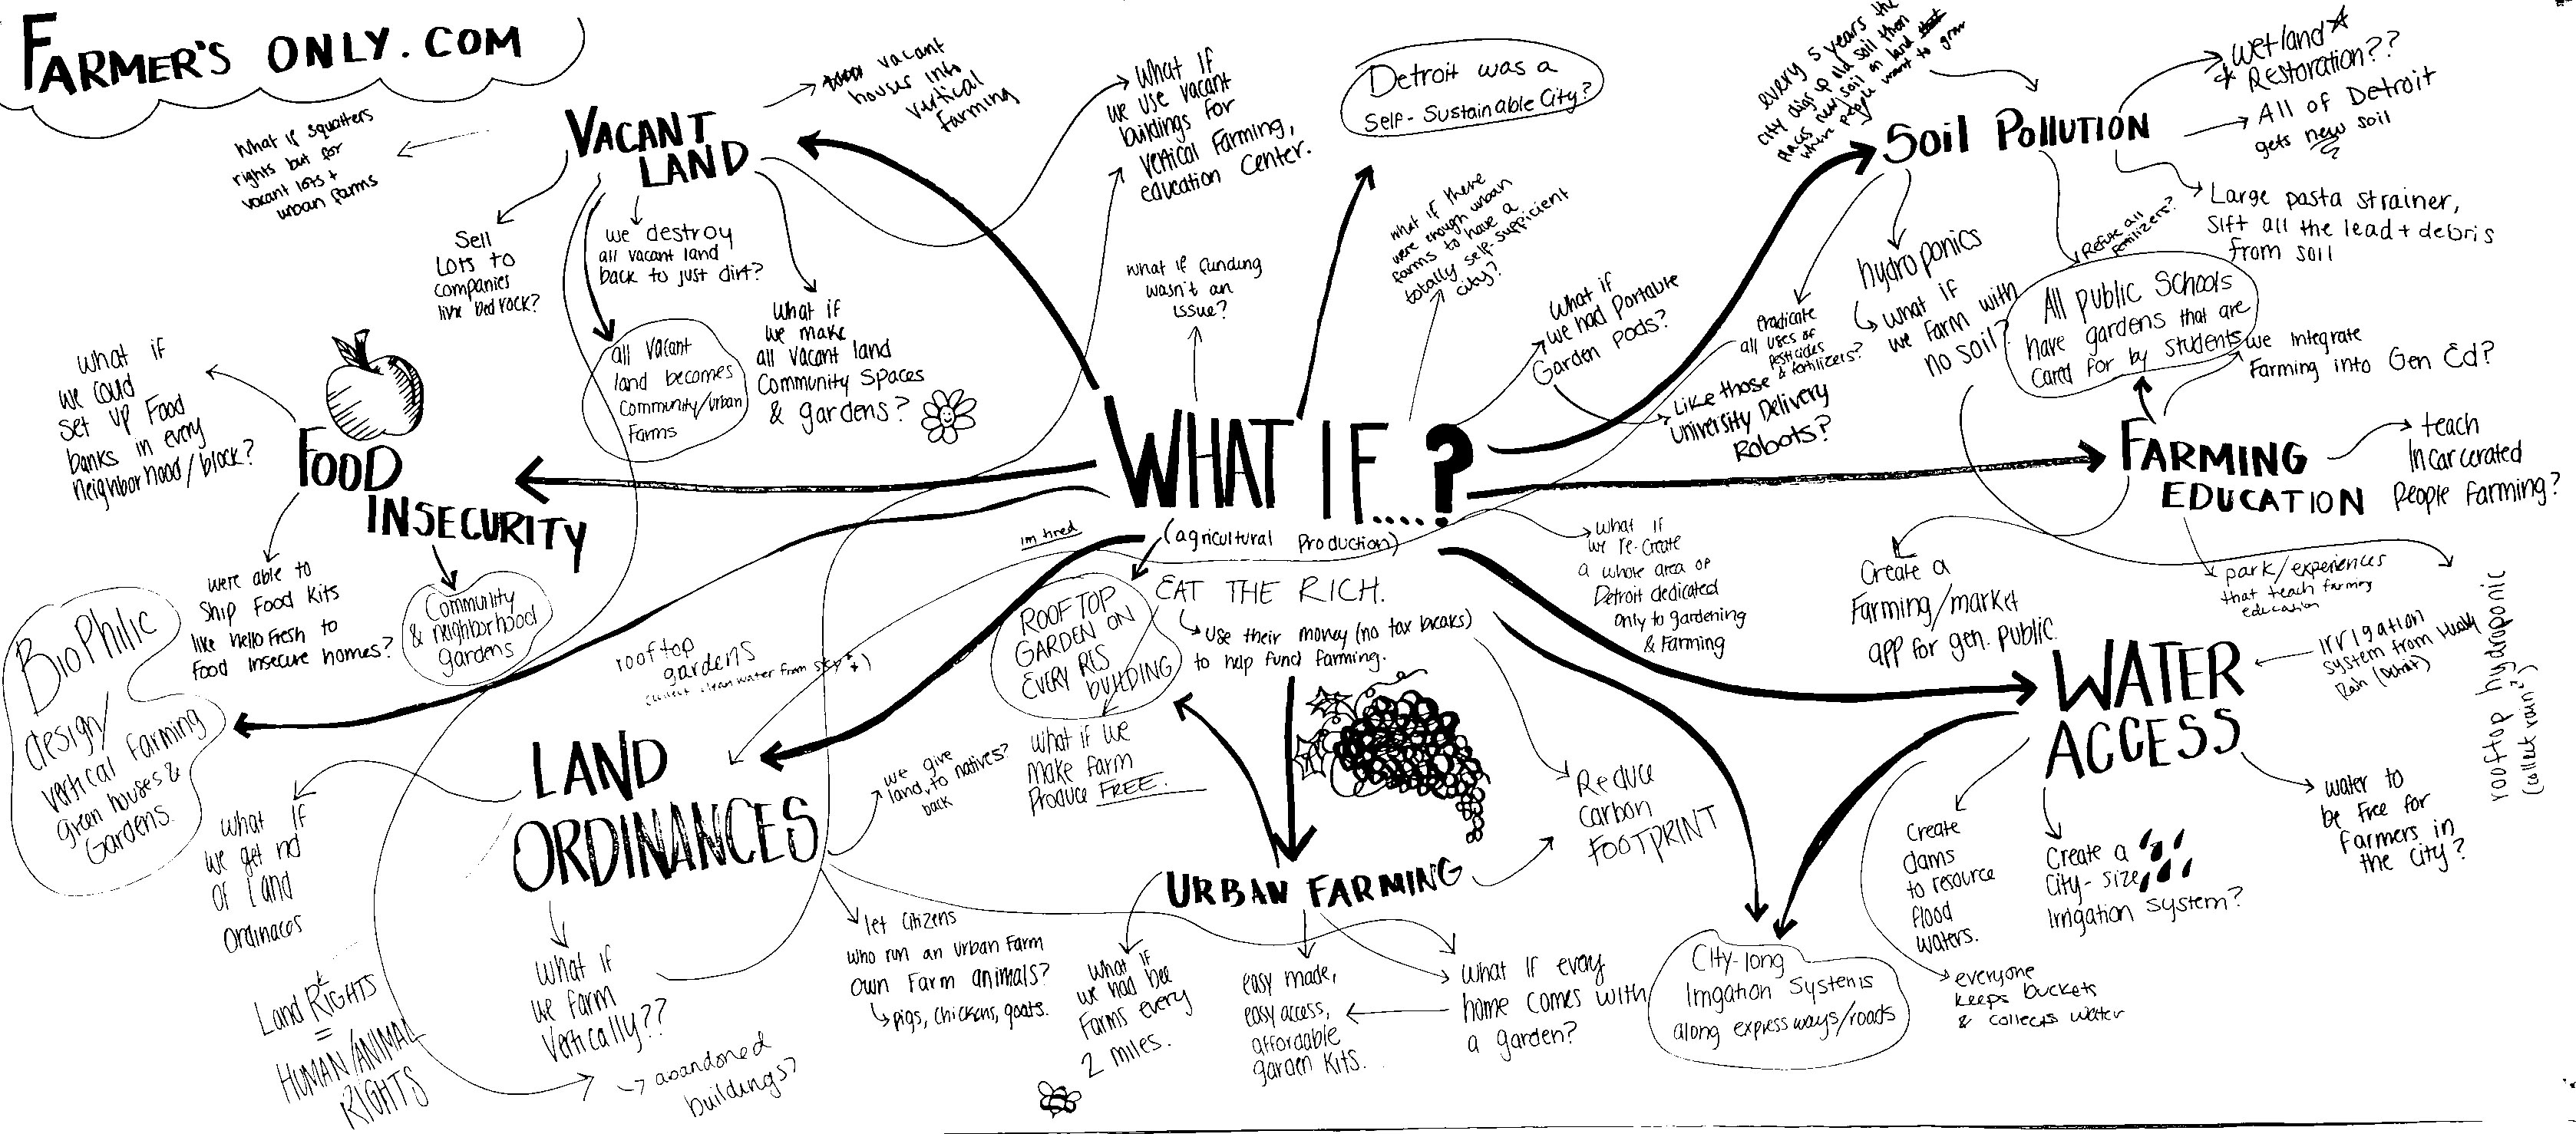 FARMER'S ONLY.COM
VACANT
LAND
What if squatters
rights but for
vacant lots +
urban farms
vacant
houses into
vertical
farming
Sell
Lots to
companies
like bedrock?
we destroy
all vacant land
back to just dirt?
all vacant
land becomes
community/urban
farms
What if
we make
all vacant land
Community spaces
& gardens?
What if
we use vacant
buildings for
vertical farming,
education center.
Detroit was a
Self-Sustainable City?
what if funding
wasn't an
issue?
what if there
were enough urban
farms to have a
totally self-sufficient
city?
What if
we had portable
Garden pods?
Like those
University Delivery
Robots?
every 5 years the
city digs up old soil then
places new soil on land
where people want to grow
SOIL POLLUTION
wetland
Restoration??
All of Detroit
gets new soil
Large pasta strainer,
sift all the lead + debris
from soil
Refuse all
fertilizers?
eradicate
all uses of
pesticides
& fertilizers?
hydroponics
what if
we farm with
no soil?
All public schools
have gardens that are
cared for by students
we integrate
Farming into Gen Ed?
FARMING
EDUCATION
teach
Incarcerated
people farming?
Create a
Farming/market
app for gen. public.
park/experiences
that teach farming
education
WHAT IF....?
(agricultural production)
im tired
EAT THE RICH.
Use their money (no tax breaks)
to help fund farming.
ROOFTOP
GARDEN ON
EVERY RES
BUILDING
what if we
make farm
produce FREE.
What if
we re-create
a whole area of
Detroit dedicated
only to gardening
& Farming
FOOD
INSECURITY
what if
we could
set up food
banks in every
neighborhood/block?
were able to
ship food kits
like hello fresh to
food insecure homes?
Community
& neighborhood
gardens
BioPhilic
design/
vertical farming
green houses &
Gardens.
rooftop
gardens
collect clean water from
LAND
ORDINANCES
what if
we get rid
of land
ordinaces
Land RIGHTS
=
HUMAN/ANIMAL
RIGHTS
what if
we farm
vertically??
abandoned
buildings?
we give
land, to natives?
back
let citizens
who run an urban farm
own farm animals?
pigs, chickens, goats.
URBAN FARMING
What if
we had bee
farms every
2 miles.
easy made,
easy access,
affordable
garden kits.
What if every
home comes with
a garden?
Reduce
carbon
FOOTPRINT
WATER
ACCESS
irrigation
system from
Rain (Detroit)
rooftop hydroponic
(collect rain?)
Create
dams
to resource
flood
waters.
Create a
city-size
Irrigation system?
water to
be free for
farmers in
the city?
everyone
keeps buckets
& collects water
City-long
Irrigation Systems
along expressways/roads